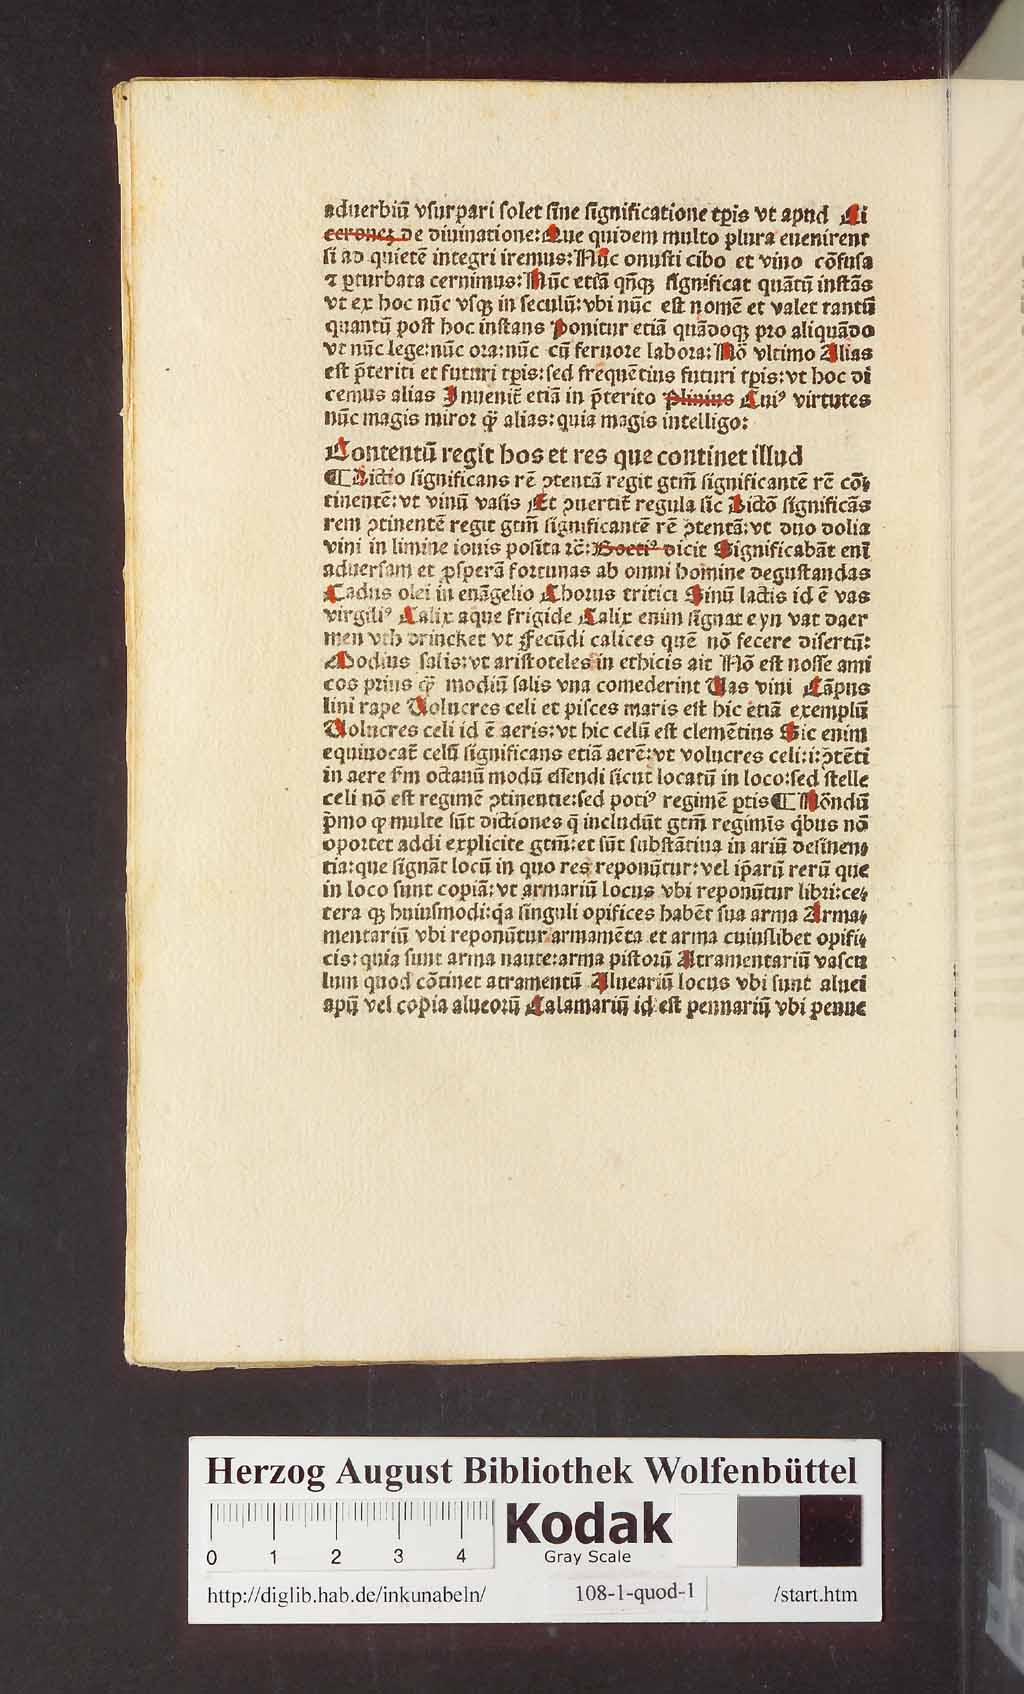 aduerbiū vsurpari solet sine significatione tꝑis vt apud Ci
ceroneȝ de diuinatione: Que quidem multo plura euenirent
si ad quietē integri iremus: Nūc onusti cibo et vino cōfusa
⁊ ꝑturbata cernimus: Nūc etiā qn̄qꝫ significat quātū instās
vt ex hoc nūc vsqꝫ in seculū: vbi nūc est nomē et valet tantū
quantū post hoc instans Ponitur etiā quādoqꝫ pro aliquādo
vt nūc lege: nūc ora: nūc cū feruore labora: Nō vltimo Alias
est p̄teriti et futuri tꝑis: sed frequētius futuri tꝑis: vt hoc di
cemus alias Inuenit̄ etiā in p̄terito Plinius Cuiꝰ virtutes
nūc magis miror ꝙ̄ alias: quia magis intelligo:
Contentū regit hos et res que continet illud
¶ Dictio significans rē ꝯtentā regit gtm̄ significantē rē cō⸗
tinentē: vt vinū vasis Et ꝯuertit̄ regula sic Dictō significās
rem ꝯtinentē regit gtm̄ significantē rē ꝯtentā: vt duo dolia
vini in limine iouis posita ⁊c̄: Boetiꝰ dicit Significabāt enī
aduersam et ꝓsperā fortunas ab omni homine degustandas
Cadus olei in euāgelio Chorus tritici Sinū lactis id ē vas
virgiliꝰ Calix aque frigide Calix enim signat eyn vat daer
men vth drincket vt Fecūdi calices quē nō fecere disertū:
Modius salis: vt aristoteles in ethicis ait Nō est nosse ami
cos prius ꝙ̄ modiū salis vna comederint Vas vini Cāpus
lini rape Volucres celi et pisces maris est hic etiā exemplū
Volucres celi id ē aeris: vt hic celū est clemētius Sic enim
equiuocat̄ celū significans etiā aerē: vt volucres celi: i: ꝯtēti
in aere s̄m octauū modū essendi sicut locatū in loco: sed stelle
celi nō est regimē ꝯtinentie: sed potiꝰ regimē ꝑtis ¶ Nōndū
p̄mo ꝙ multe sūt dictiones q̄ includūt gtm̄ regimīs q̄bus nō
oportet addi explicite gtm̄: et sūt substātiua in ariū desinen⸗
tia: que signāt locū in quo res reponūtur: vel ip̄arū rerū que
in loco sunt copiā: vt armariū locus vbi reponūtur libri: ce⸗
tera qꝫ huiusmodi: q̄a singuli opifices habēt sua arma Arma⸗
mentariū vbi reponūtur armamēta et arma cuiuslibet opifi⸗
cis: quia sunt arma naute: arma pistorū Atramentariū vascu
lum quod cōtinet atramentū Aluearīū locus vbi sunt aluei
apū vel copia alueorū Calamariū id est pennariū vbi penne
Herzog August Bibliothek Wolfenbüttel
0 1 2 3 4
Kodak
Gray Scale
http://diglib.hab.de/inkunabeln/ 108-1-quod-1 /start.htm